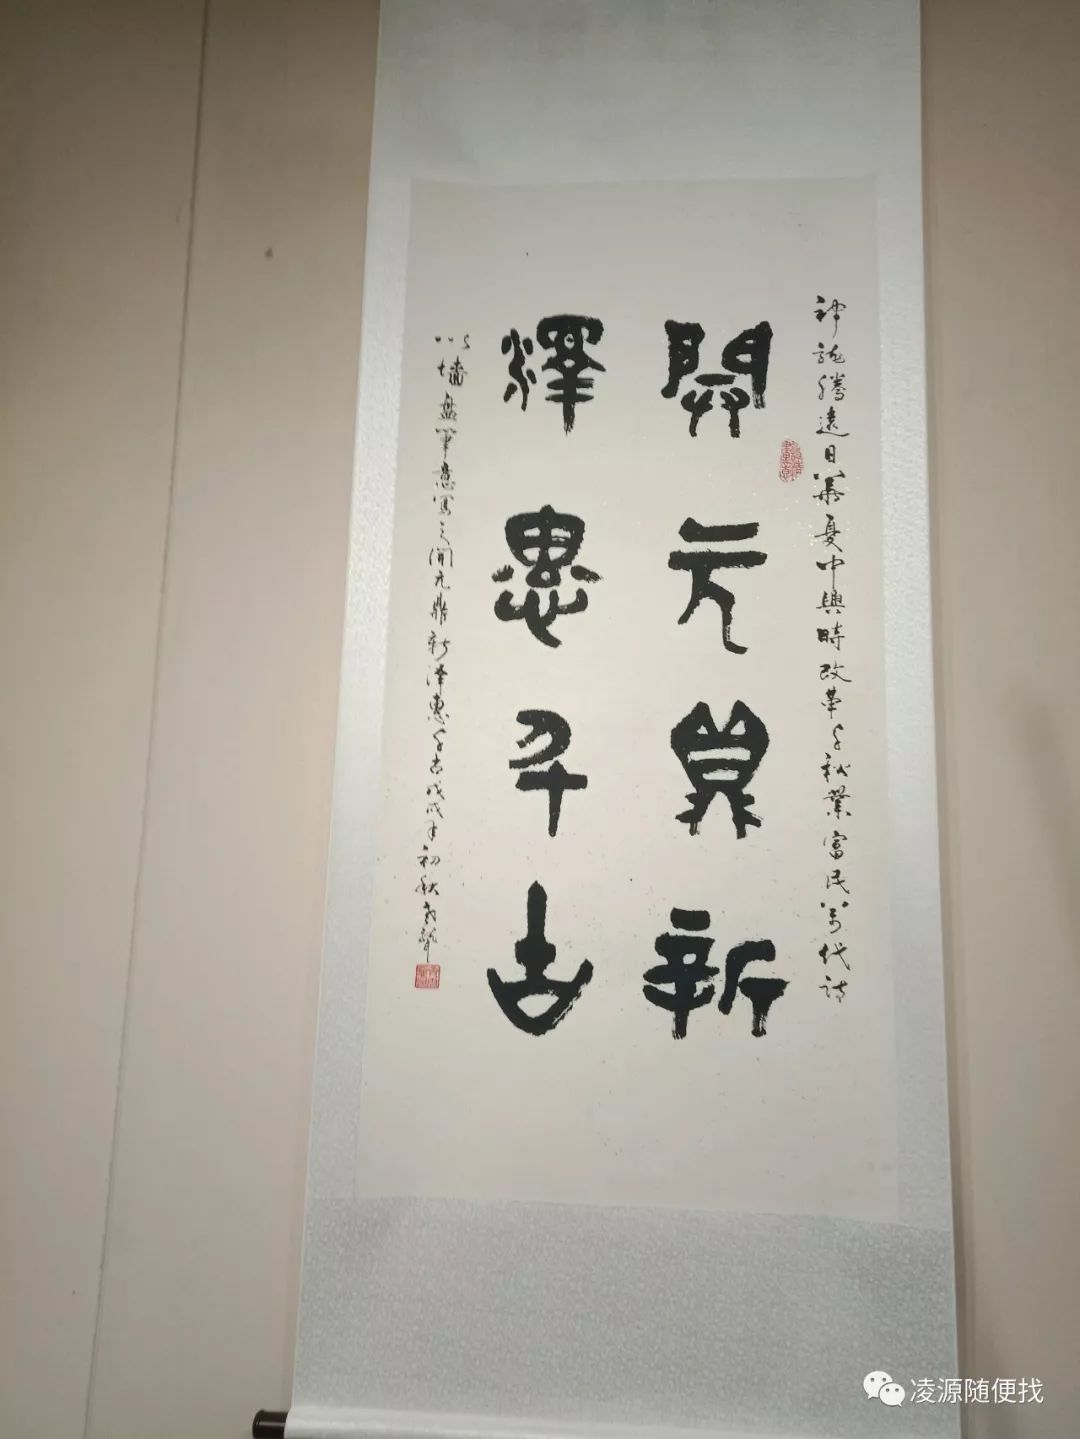 神龍騰遠日華夏中興時改革千秋業富民萬代詩
開元鼎新
澤惠千古
以墻盘筆意寫之開元鼎新澤惠千古戊戌年初秋
凌源随便找